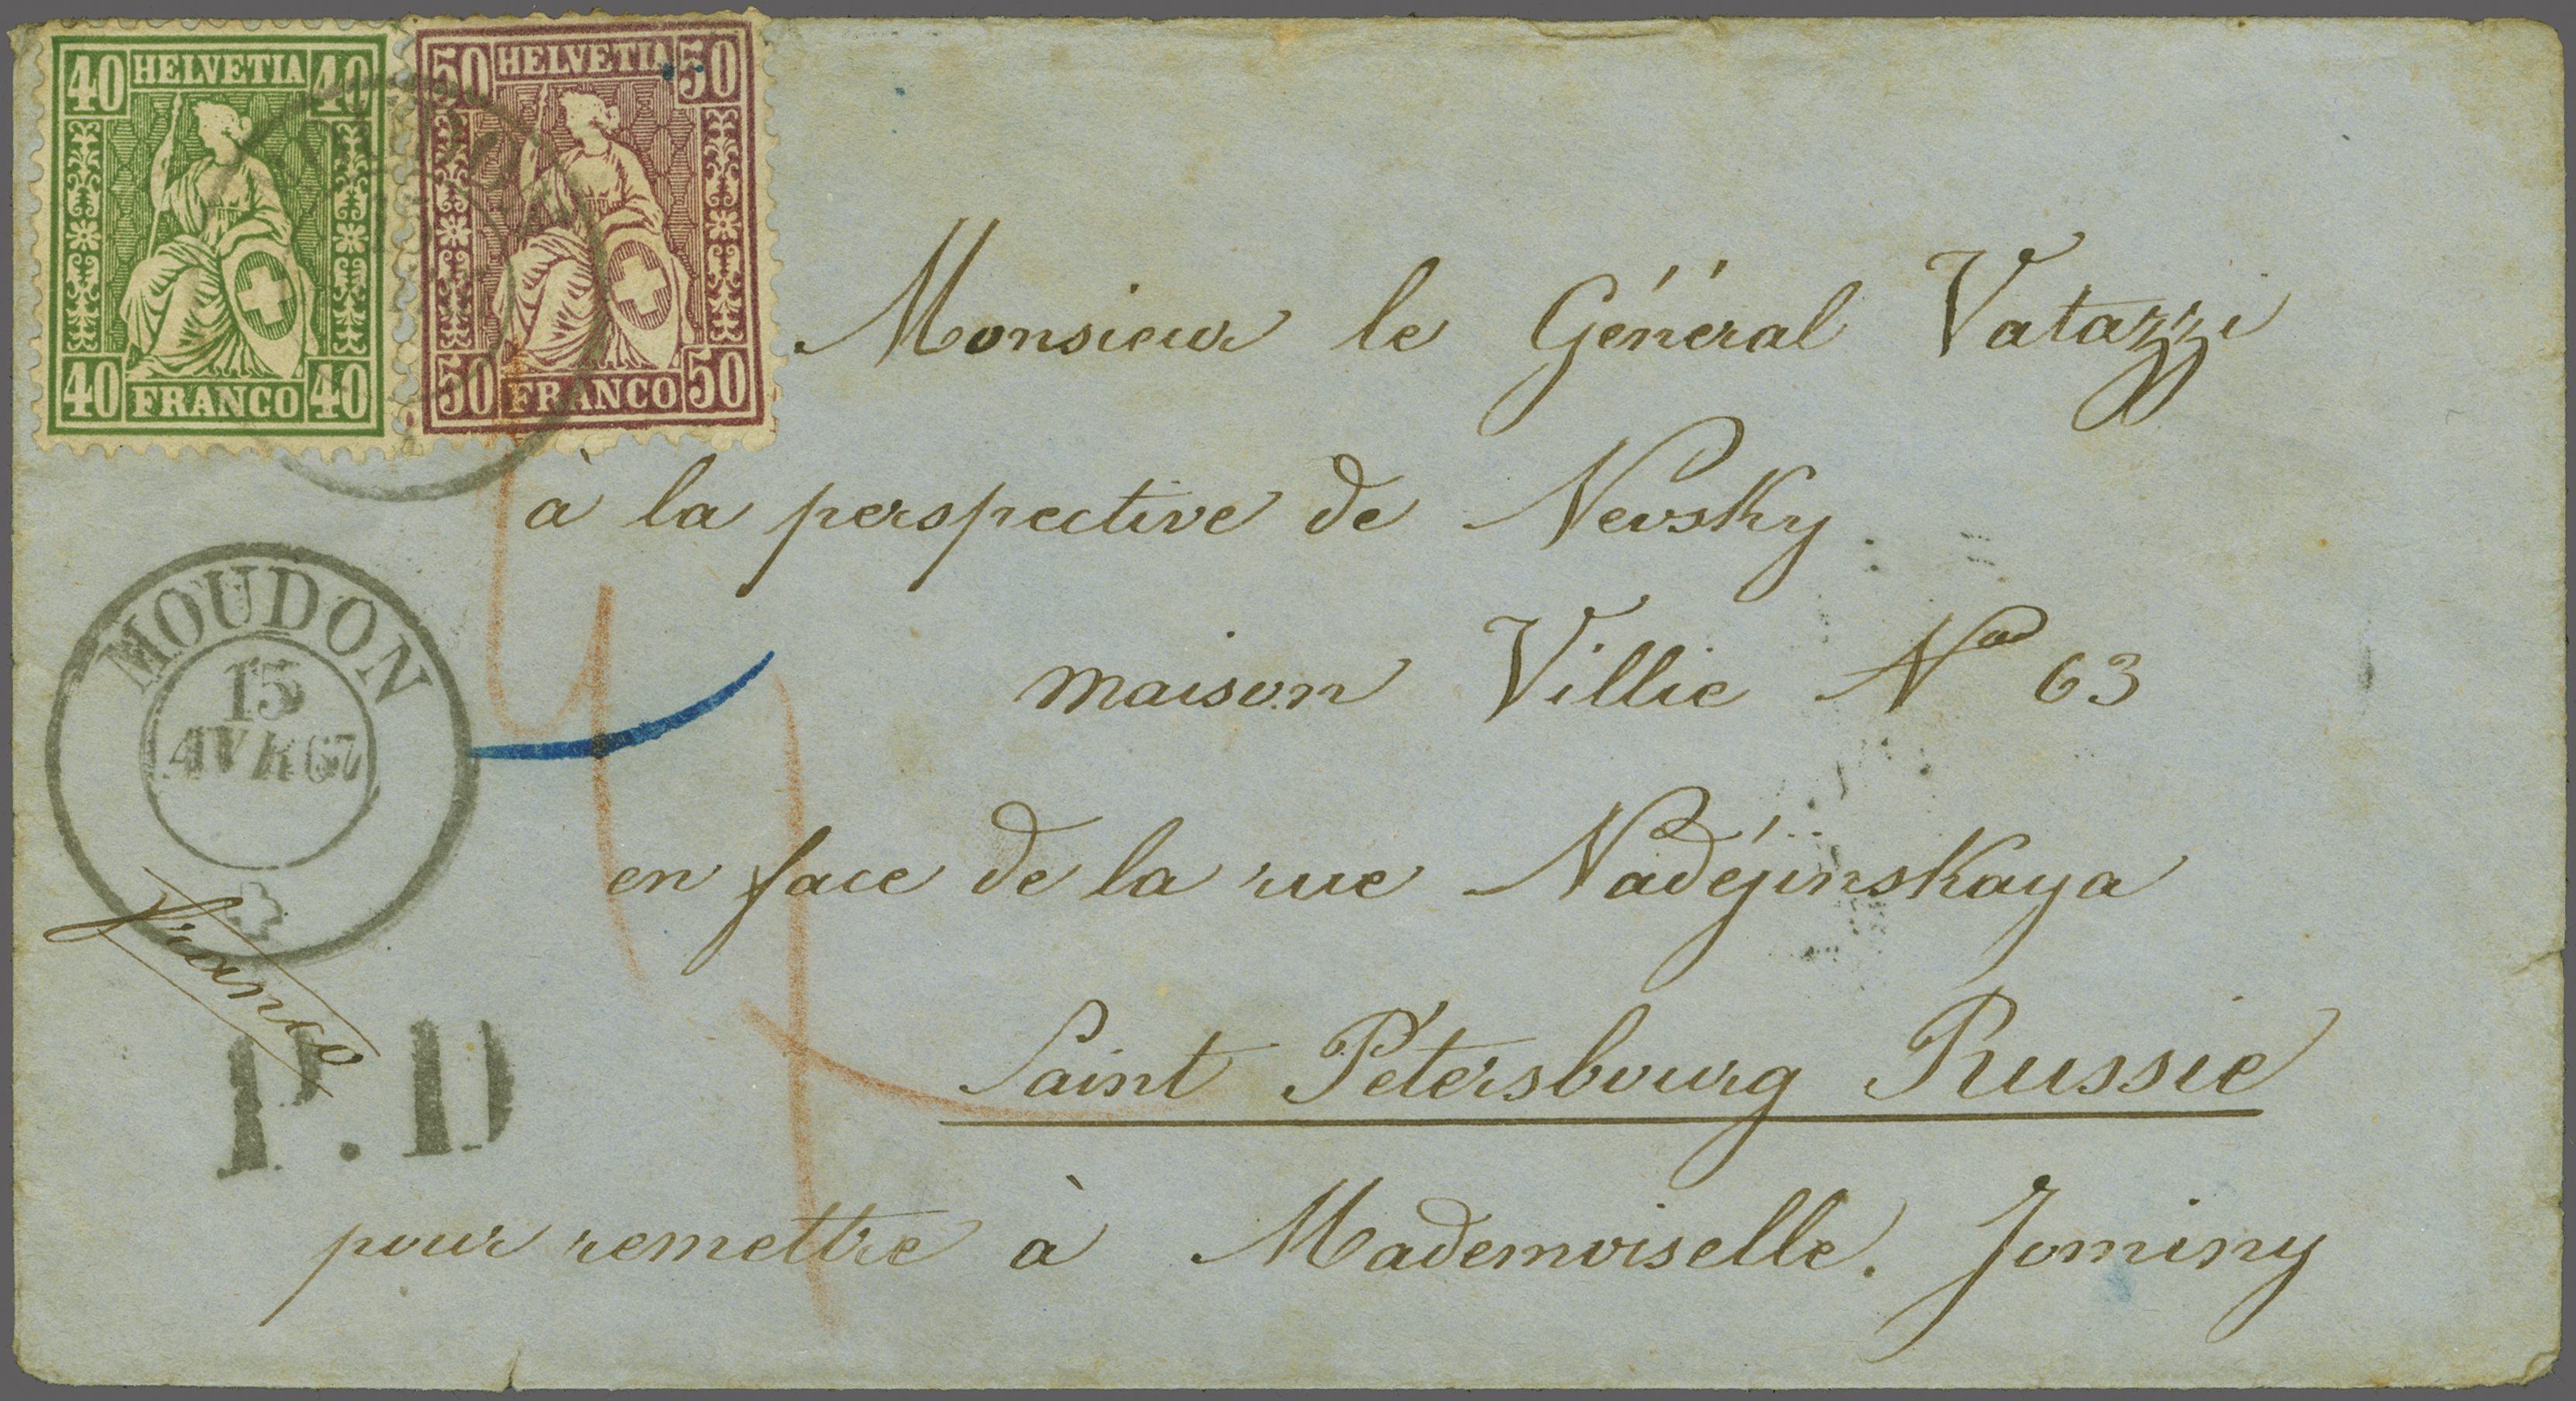 40 HELVETIA 40
40 FRANCO 40
50 HELVETIA 50
50 FRANCO 50
Monsieur le Général Vatazzi
à la perspective de Nevsky
maison Villie No 63
en face de la rue Nadéjinskaya
Saint Pétersbourg Russie
pour remettre à Mademoiselle. Jominy
MOUDON
15
AVR 67
franco
P.D